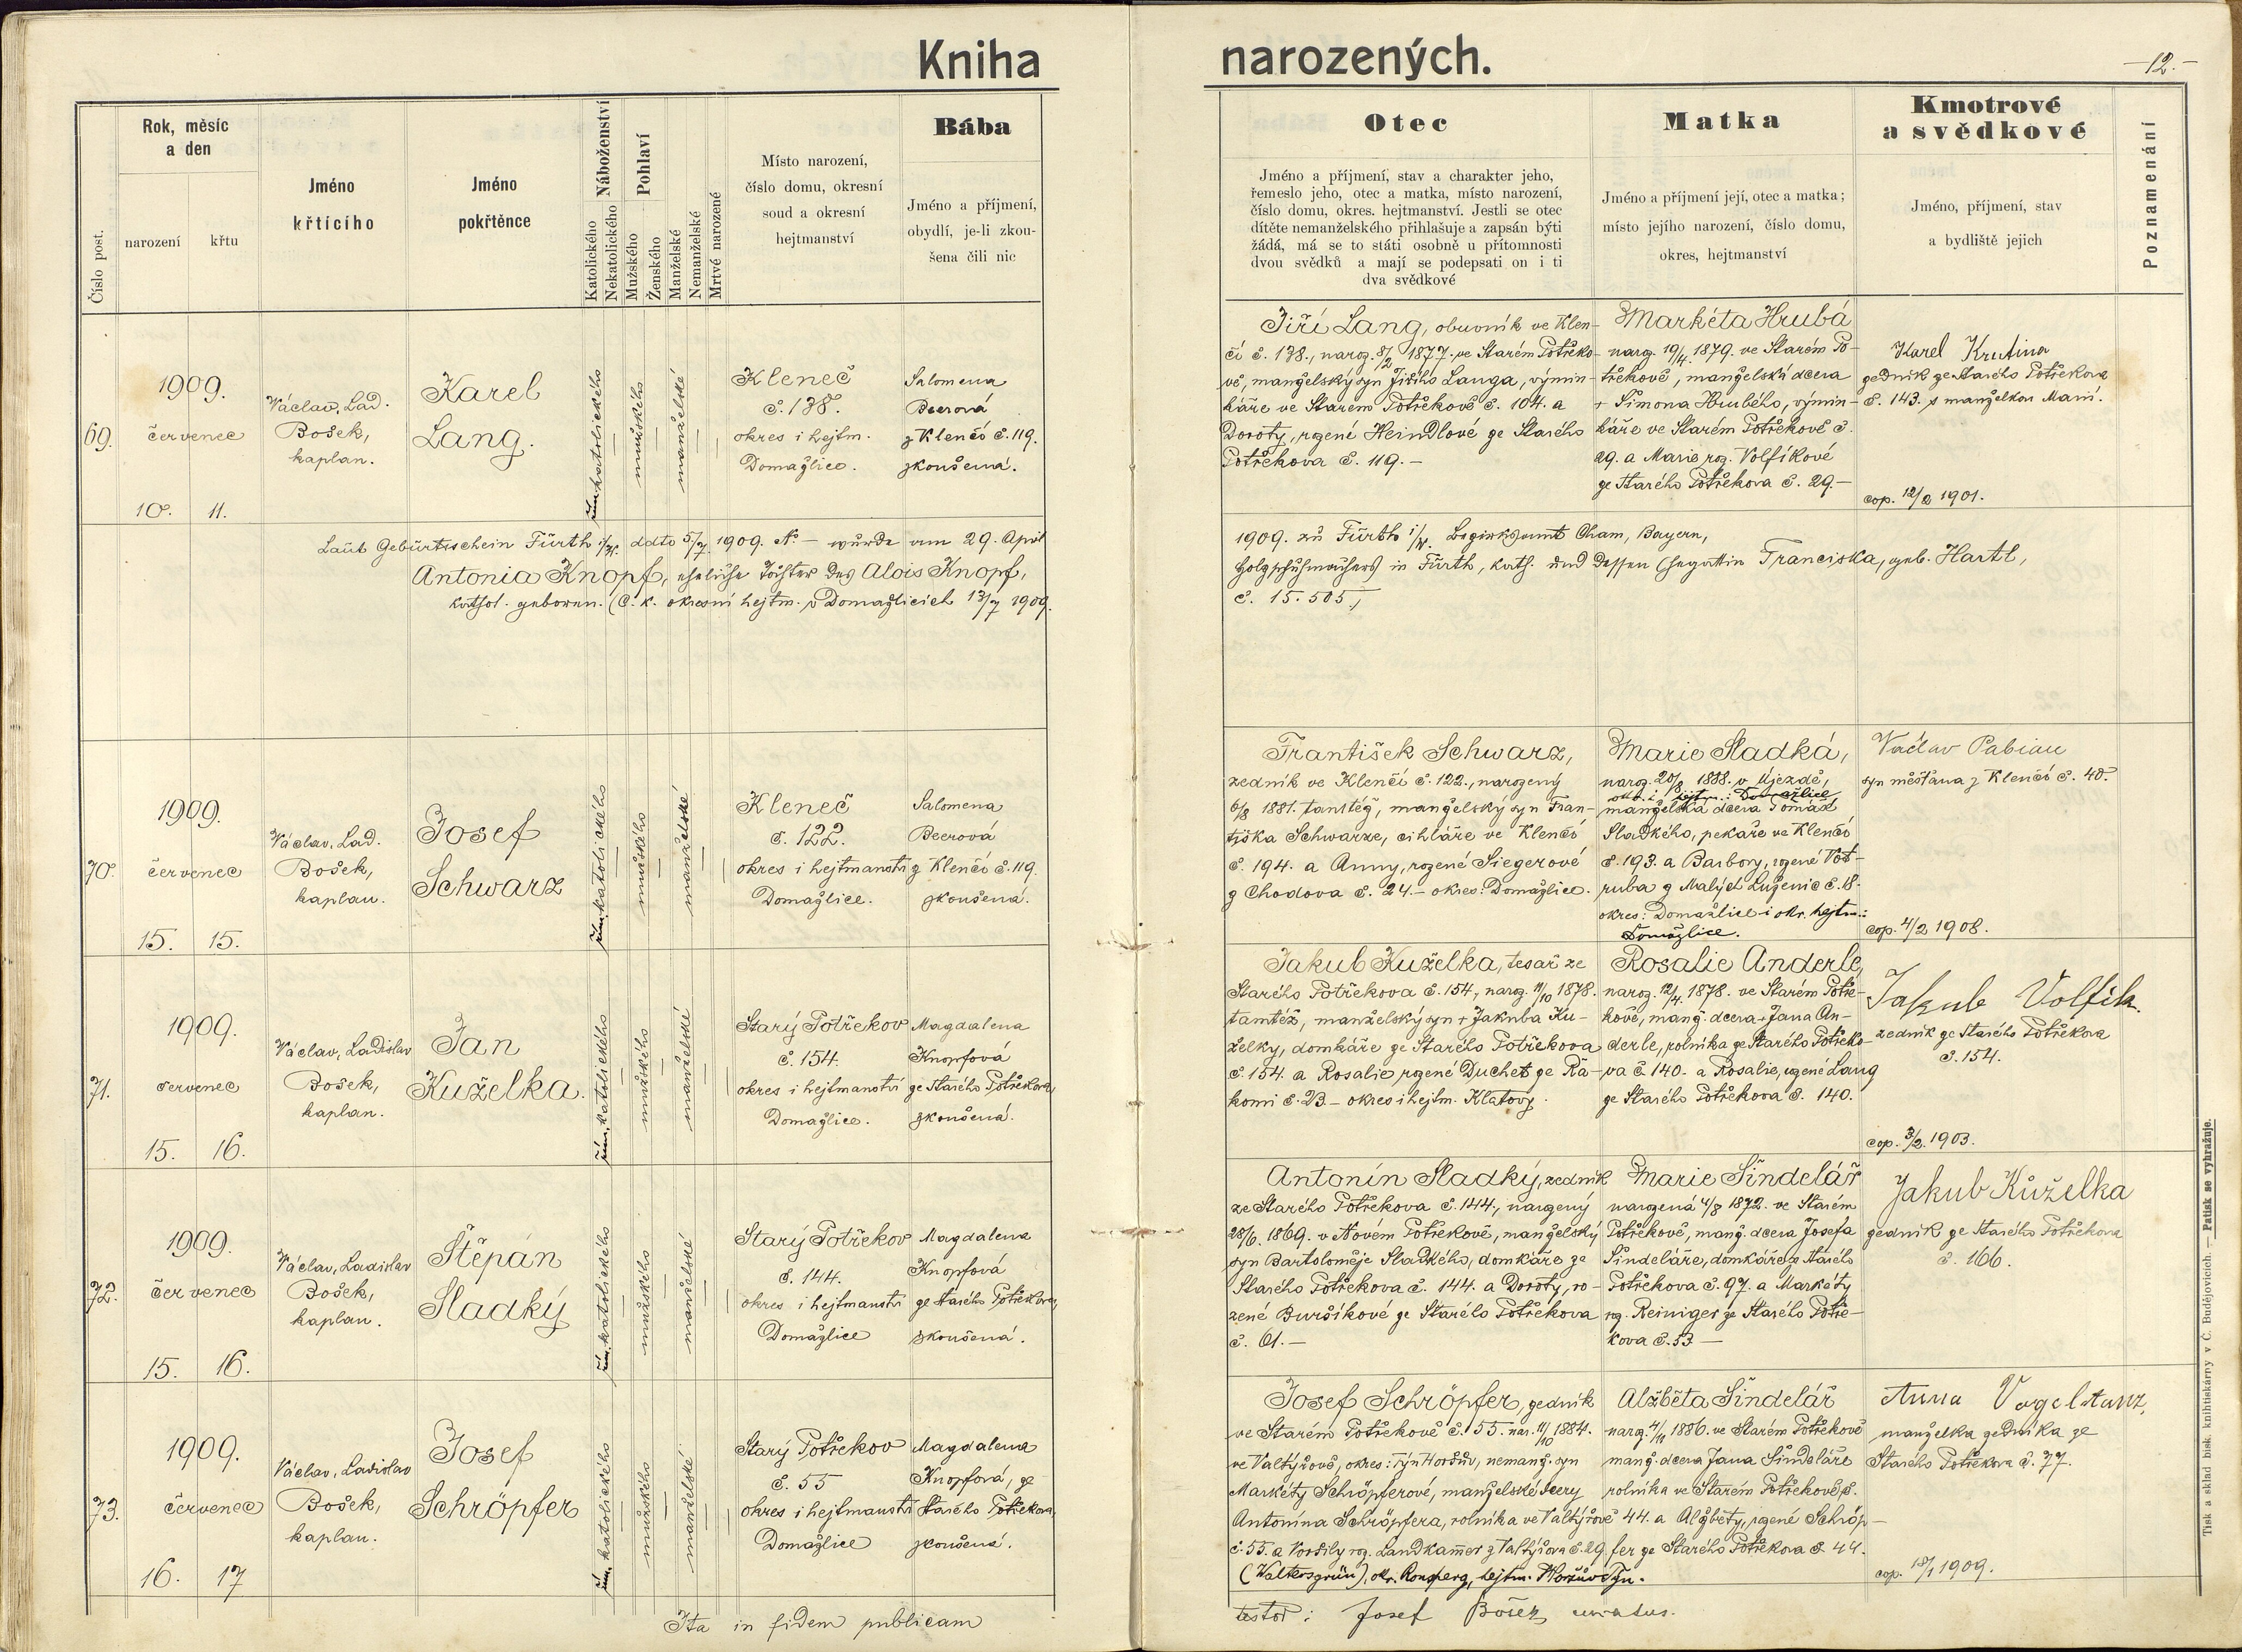 Kniha narozených.
-12.-
Číslo post.
Rok, měsíc
a den
narození
křtu
Jméno
křtícího
Jméno
pokřtěnce
Náboženství
Katolického
Nekatolického
Pohlaví
Mužského
Ženského
Manželské
Nemanželské
Mrtvé narozené
Místo narození,
číslo domu, okresní
soud a okresní
hejtmanství
Bába
Jméno a příjmení,
obydlí, je-li zkou-
šena čili nic
Otec
Jméno a příjmení, stav a charakter jeho,
řemeslo jeho, otec a matka, místo narození,
číslo domu, okres. hejtmanství. Jestli se otec
dítěte nemanželského přihlašuje a zapsán býti
žádá, má se to státi osobně u přítomnosti
dvou svědků a mají se podepsati on i ti
dva svědkové
Matka
Jméno a příjmení její, otec a matka;
místo jejího narození, číslo domu,
okres, hejtmanství
Kmotrové
a svědkové
Jméno, příjmení, stav
a bydliště jejich
Poznamenání
69.
1909.
červenec
10. 11.
Václav, Lad.
Bošek,
kaplan.
Karel
Lang.
řím. katolického
mužského
manželské
Kleneč
č. 138.
okres i hejtm.
Domažlice.
Salomena
Beerová
z Klenčí č. 119.
zkoušená.
Jiří Lang, obuvník ve Klen-
čí č. 138., naroz. 8/2 1877. ve Starém Potřeko-
vě, manželský syn Jiřího Langa, výmin-
káře ve Starém Potřekově č. 104. a
Doroty, rozené Heindlové ze Starého
Potřekova č. 119.-
Markéta Hrubá
naroz. 19/4. 1879. ve Starém Po-
třekově, manželská dcera
+ Šimona Hrubého, výmin-
káře ve Starém Potřekově č.
29. a Marie roz. Volfíkové
ze Starého Potřekova č. 29.-
Karel Krutina
zedník ze Starého Potřekova
č. 143. s manželkou Marií.
cop. 12/2 1901.
Laut Geburtsschein Fürth i/W. ddto 5/7 1909. No - wurde am 29. April
1909. zu Fürth i/W. Bezirksamt Cham, Bayern,
Antonia Knopf, eheliche Tochter des Alois Knopf,
Holzschuhmachers in Fürth, kath. und dessen Ehegattin Franciska, geb. Hartl,
kathol. geboren. (C. k. okresní hejtm. v Domažlicích 13/7 1909.
č. 15.505.)
70.
1909.
červenec
15. 15.
Václav, Lad.
Bošek,
kaplan.
Josef
Schwarz
řím. katolického
mužského
manželské
Kleneč
č. 122.
okres i hejtmanství
Domažlice.
Salomena
Beerová
z Klenčí č. 119.
zkoušená.
František Schwarz,
zedník ve Klenčí č. 122., narozený
6/8 1881. tamtéž, manželský syn Fran-
tiška Schwarze, cihláře ve Klenčí
č. 194. a Anny, rozené Siegerové
z Chodova č. 24.- okres: Domažlice.
Marie Sladká,
naroz. 20/8 1888. v Újezdě,
manželská dcera Tomáše
Sladkého, pekaře ve Klenčí
č. 193. a Barbory, rozené Vot-
ruba z Malých Luženic č. 18.
okres: Domažlice i okr. hejtm.:
Domažlice.
Václav Pabian
syn měšťana z Klenčí č. 40.
cop. 4/2 1908.
71.
1909.
červenec
15. 16.
Václav, Ladislav
Bošek,
kaplan.
Jan
Kuželka.
řím. katolického
mužského
manželské
Starý Potřekov
č. 154.
okres i hejtmanství
Domažlice.
Magdalena
Knopfová
ze Starého Potřekova,
zkoušená.
Jakub Kuželka, tesař ze
Starého Potřekova č. 154, naroz. 11/10 1878.
tamtéž, manželský syn + Jakuba Ku-
želky, domkáře ze Starého Potřekova
č. 154. a Rosalie rozené Duchet ze Ra-
komi č. 23.- okres i hejtm. Klatovy.
Rosalie Anderle,
naroz. 12/4. 1878. ve Starém Potře-
kově, manž. dcera + Jana An-
derle, rolníka ze Starého Potřeko-
va č. 140. a Rosalie, rozené Lang
ze Starého Potřekova č. 140.
Jakub Volfík.
zedník ze Starého Potřekova
č. 154.
cop. 3/2. 1903.
72.
1909.
červenec
15. 16.
Václav, Ladislav
Bošek,
kaplan.
Štěpán
Sladký
řím. katolického
mužského
manželské
Starý Potřekov
č. 144.
okres i hejtmanství
Domažlice
Magdalena
Knopfová
ze Starého Potřekova,
zkoušená.
Antonín Sladký, zedník
ze Starého Potřekova č. 144., narozený
28/6. 1869. v Novém Potřekově, manželský
syn Bartoloměje Sladkého, domkáře ze
Starého Potřekova č. 144. a Doroty, ro-
zené Buršíkové ze Starého Potřekova
č. 61.-
Marie Šindelář
narozená 4/8 1872. ve Starém
Potřekově, manž. dcera Josefa
Šindeláře, domkáře ze Starého
Potřekova č. 97. a Markéty
roz. Reiniger ze Starého Potře-
kova č. 53 -
Jakub Kůželka
zedník ze Starého Potřekova
č. 166.
73.
1909.
červenec
16. 17
Václav, Ladislav
Bošek,
kaplan.
Josef
Schröpfer
řím. katolického
mužského
manželské
Starý Potřekov
č. 55
okres i hejtmanství
Domažlice
Magdalena
Knopfová, ze
Starého Potřekova,
zkoušená.
Josef Schröpfer, zedník
ve Starém Potřekově č. 55. nar. 11/10 1884.
ve Valtýřově, okres: Týn Horšův, nemanž. syn
Markéty Schröpferové, manželské dcery
Antonína Schröpfera, rolníka ve Valtýřově
č. 55. a Voršily roz. Landkamer z Valtýřova č. 29
(Waltersgrün), okr. Ronsperg, hejtm. Horšův Týn.
Alžběta Šindelář
naroz. 4/11 1886. ve Starém Potřekově
manž. dcera Jana Šindeláře
rolníka ve Starém Potřekově č.
44. a Alžběty, rozené Schröp-
fer ze Starého Potřekova č. 44.
Anna Vogeltanz,
manželka zedníka ze
Starého Potřekova č. 77.
cop. 18/1 1909.
Ita in fidem publicam
testor: Josef Bošek, curatus.
Tisk a sklad bisk. knihtiskárny v Č. Budějovicích. — Patisk se vyhražuje.